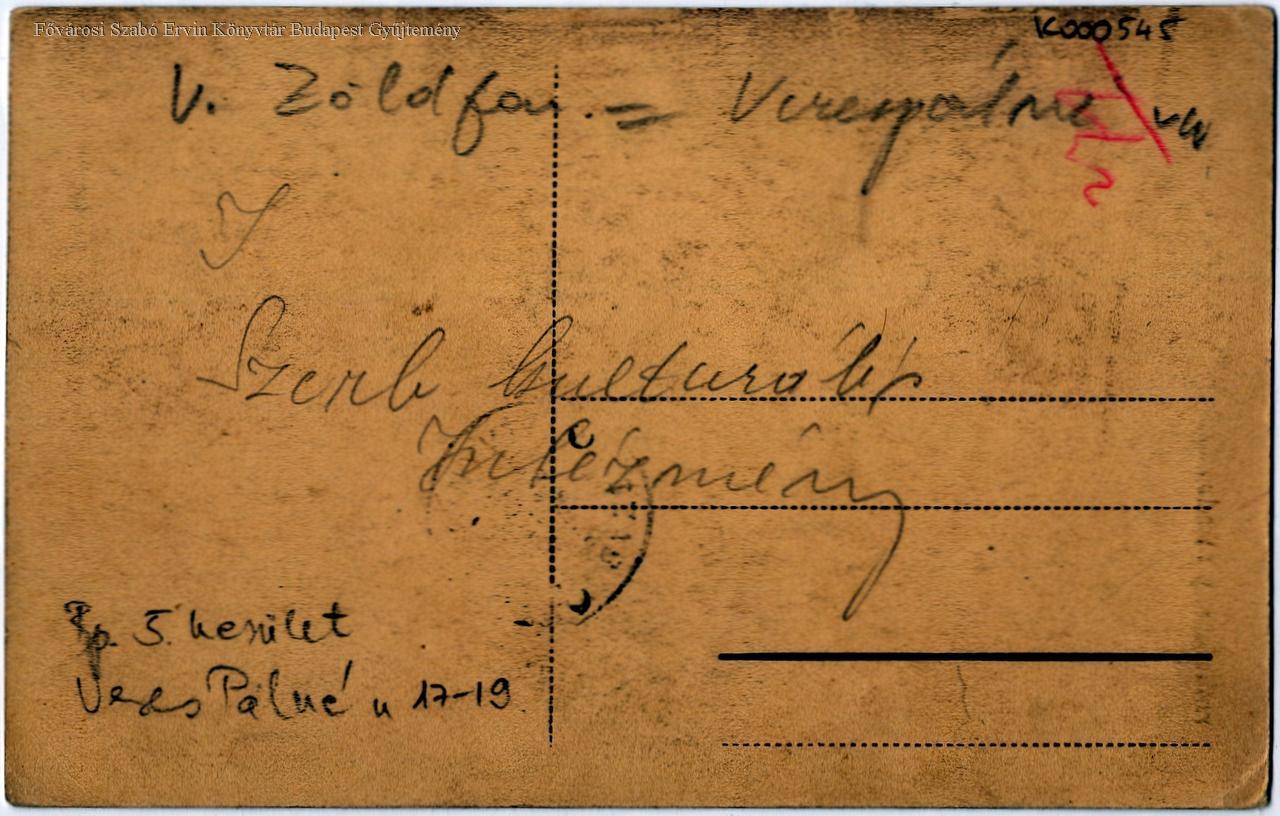 Fővárosi Szabó Ervin Könyvtár Budapest Gyűjtemény
K000545
V. Zöldfa u. = Verespálné u
Szerb kulturális
Intézmény
Bp. 5. kerület
Veres Pálné u 17-19